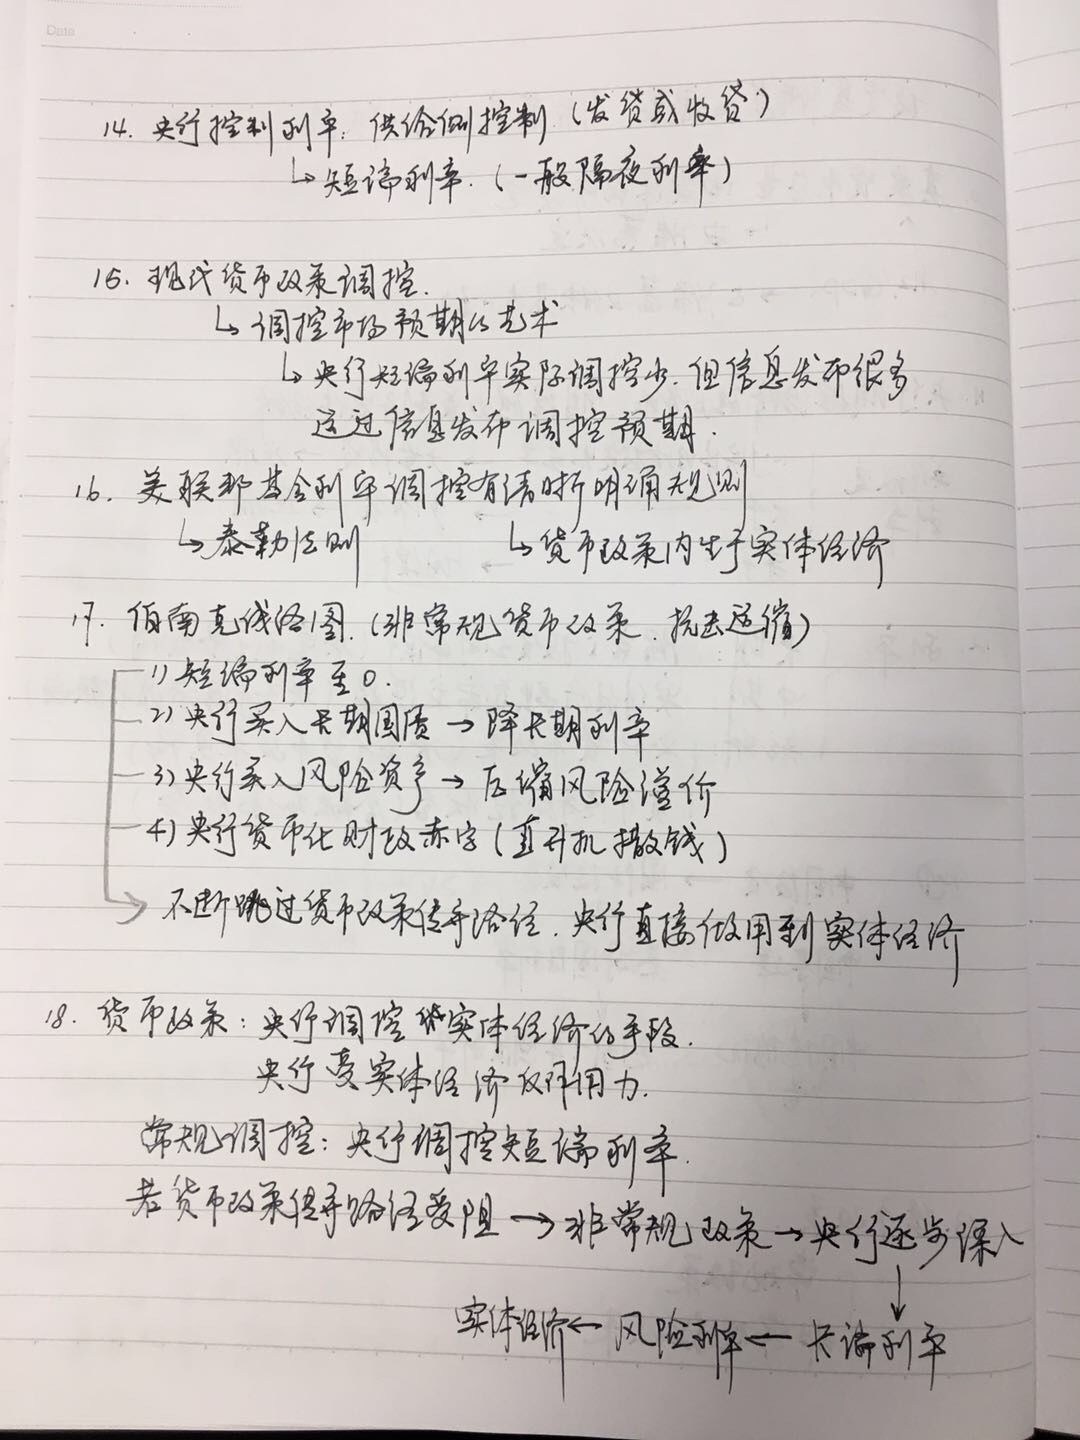 Data
14. 央行控制利率: 供给侧控制 (发货或收贷)
↳ 短端利率. (一般隔夜利率)
15. 现代货币政策调控.
↳ 调控市场预期的艺术
↳ 央行短端利率实际调控少. 但信息发布很多
通过信息发布调控预期.
16. 美联邦基金利率调控有清晰明确规则
↳ 泰勒法则 ↳ 货币政策内生于实体经济
17. 伯南克线路图. (非常规货币政策. 抗击通缩)
1) 短端利率至0.
2) 央行买入长期国债 → 降长期利率
3) 央行买入风险资产 → 压缩风险溢价
4) 央行货币化财政赤字 (直升机撒钱)
不断跳过货币政策传导路径. 央行直接做用到实体经济
18. 货币政策: 央行调控实体经济的手段.
央行受实体经济反作用力.
常规调控: 央行调控短端利率.
若货币政策传导路径受阻 → 非常规政策 → 央行逐步深入
↓
实体经济 ← 风险利率 ← 长端利率